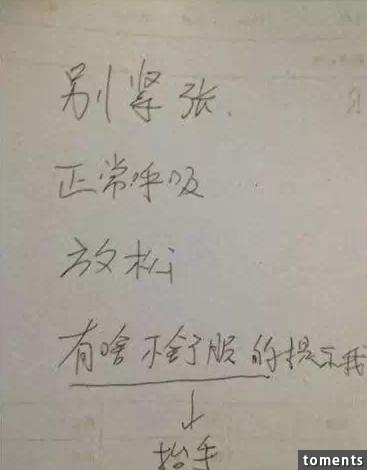 别紧张.
正常呼吸
放松
有啥不舒服的提示我
↓
抬手
toments